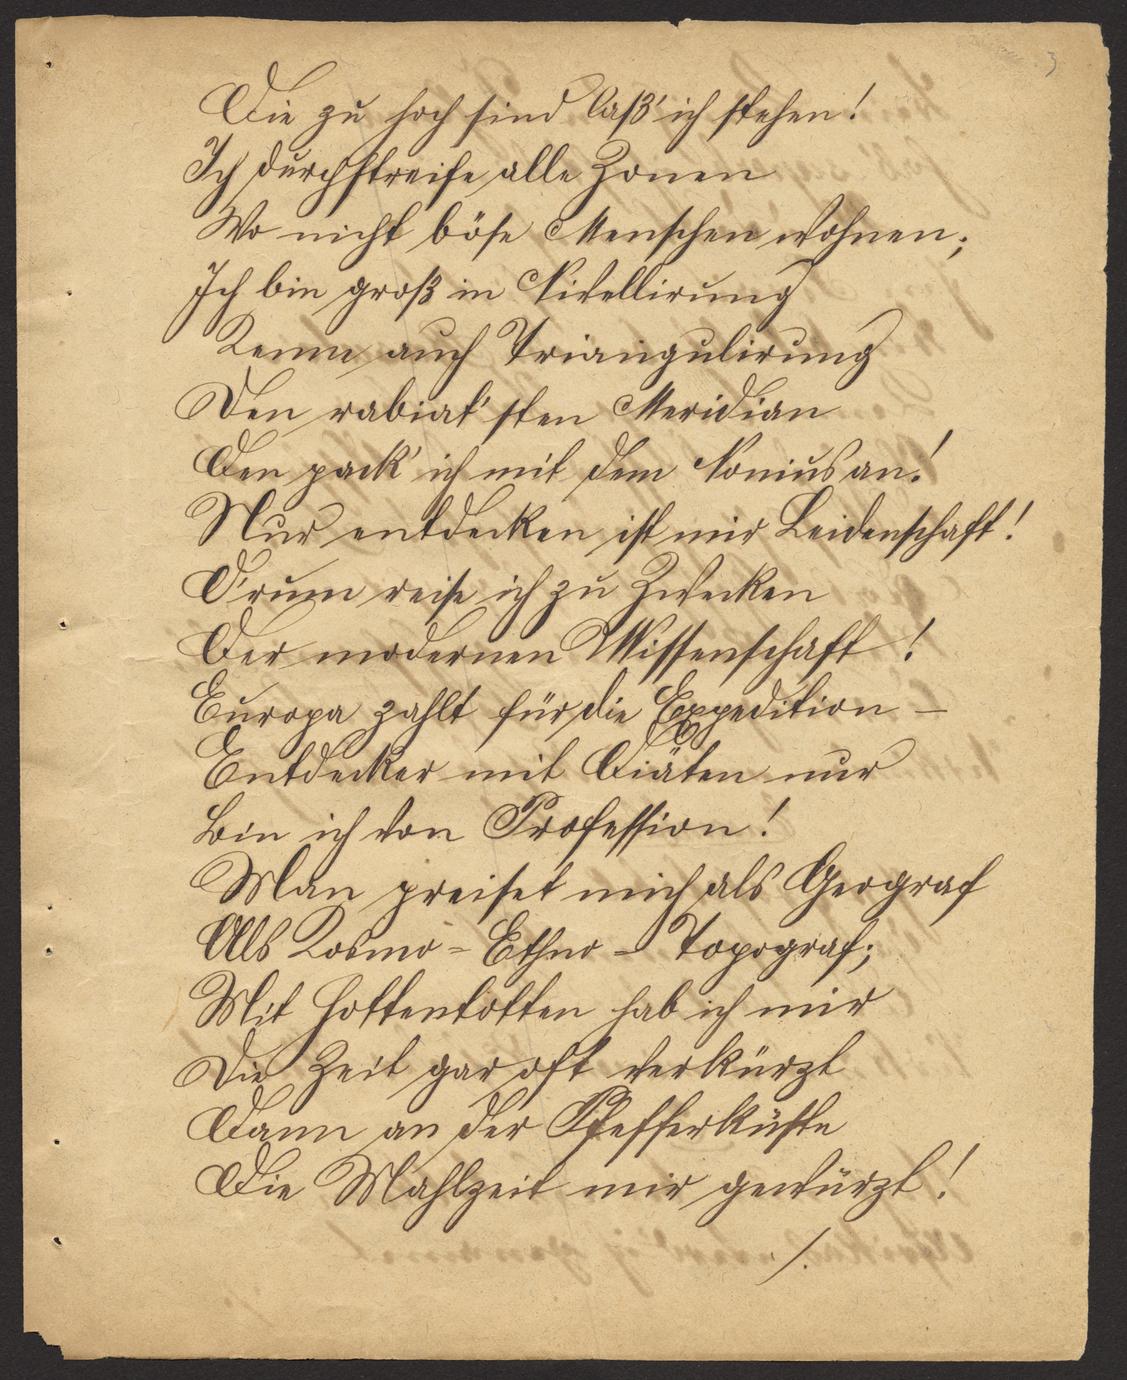 3
Die zu hoch sind laß' ich stehen!
Ich durchstreife alle Zonen
Wo nicht böse Menschen wohnen;
Ich bin groß in Nivellirung
Kenne auch Triangulirung
Den rabiat'sten Meridian
Den pack' ich mit dem Nonius an!
Nur entdecken ist mir Leidenschaft!
D'rum reise ich zu Zwecken
Der modernen Wissenschaft!
Europa zahlt für die Expedition –
Entdecker mit Diäten nur
Bin ich von Profession!
Man preiset mich als Geograf
Als Kosmo- Ethno- Topograf;
Mit Hottentotten hab ich mir
Die Zeit gar oft verkürzt
Dann an der Pfefferküste
Die Mahlzeit mir gewürzt!
./.